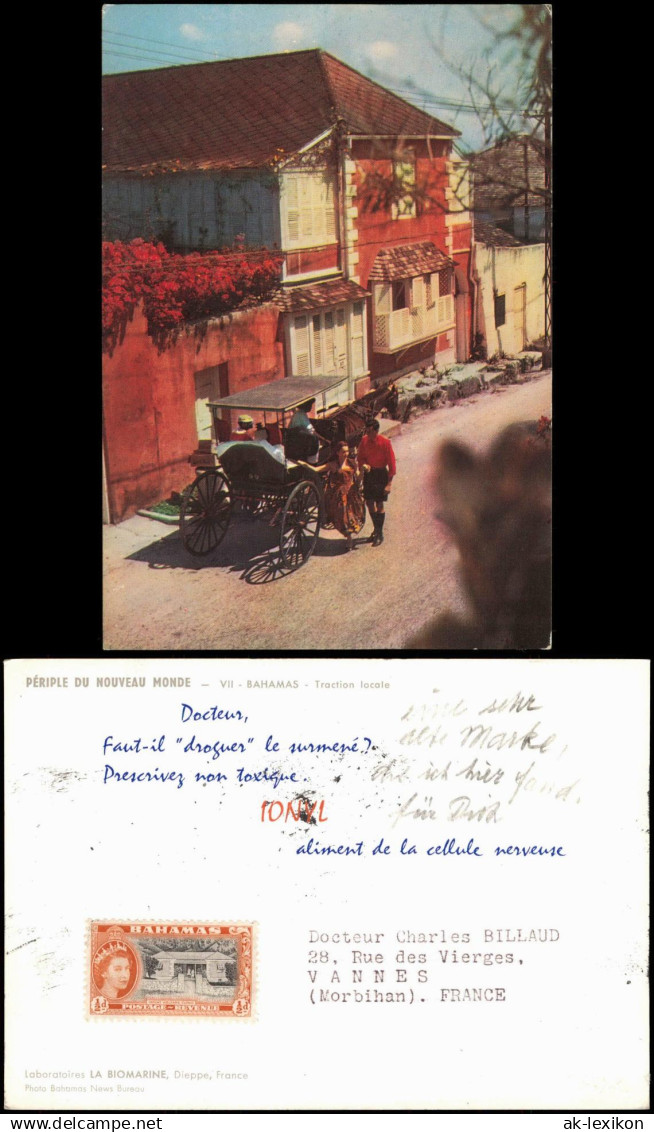 PÉRIPLE DU NOUVEAU MONDE — VII - BAHAMAS - Traction locale
Docteur,
Faut-il "droguer" le surmené?
Prescrivez non toxique.
IONYL
aliment de la cellule nerveuse
eine sehr
alte Marke,
die ich hier fand.
für Dich
BAHAMAS
½d ½d
POSTAGE & REVENUE
Docteur Charles BILLAUD
28, Rue des Vierges,
VANNES
(Morbihan). FRANCE
Laboratoires LA BIOMARINE, Dieppe, France
Photo Bahamas News Bureau
delcampe.net
ak-lexikon